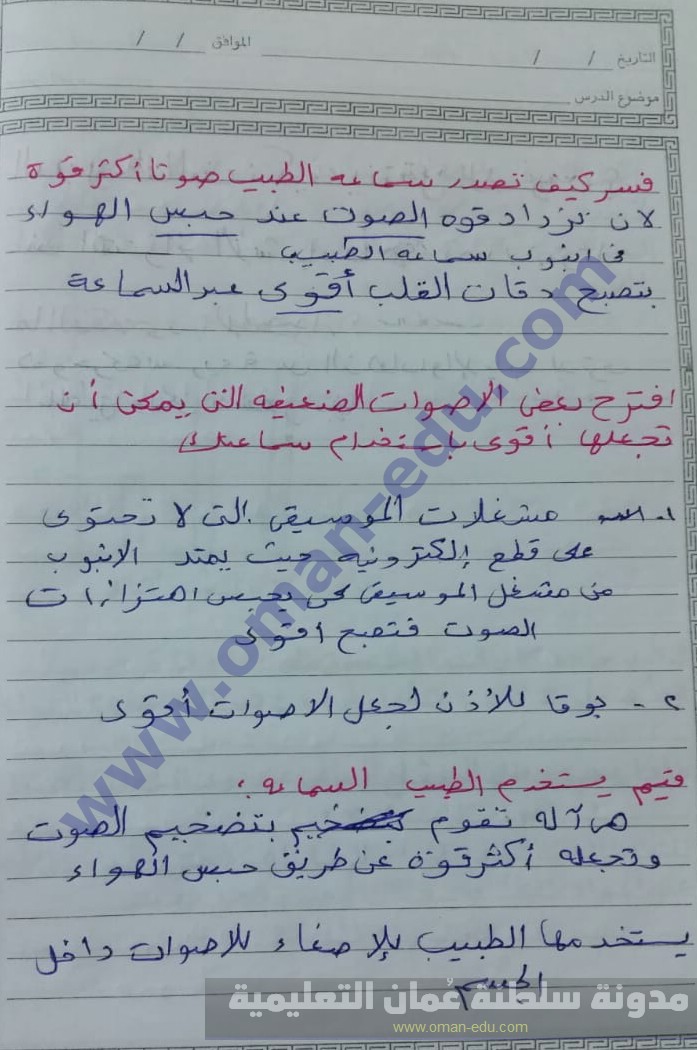 التاريخ / / الموافق / /
موضوع الدرس
فسر كيف تصدر سماعه الطبيب صوتا أكثر قوة
لان تزداد قوه الصوت عند حبس الهواء
في انبوب سماعة الطبيب
بتصبح دقات القلب أقوى عبر السماعة
اقترح بعض الاصوات الضعيفه التي يمكن أن
تجعلها أقوى باستخدام سماعتك
١- مشغلات الموسيقى التى لا تحتوى
على قطع إلكترونيه حيث يمتد الانبوب
من مشغل الموسيقى لكي يحبس اهتزازات
الصوت فتصبح اقوى
٢- بوقا للأذن لجعل الاصوات أقوى
فيم يستخدم الطبيب السماعه؟
هى آله تقوم بتضخيم بتضخيم الصوت
وتجعله أكثر قوة عن طريق حبس الهواء
يستخدمها الطبيب للإصغاء للاصوات داخل
الجسم
www.oman-edu.com
مدونة سلطنة عُمان التعليمية
www.oman-edu.com